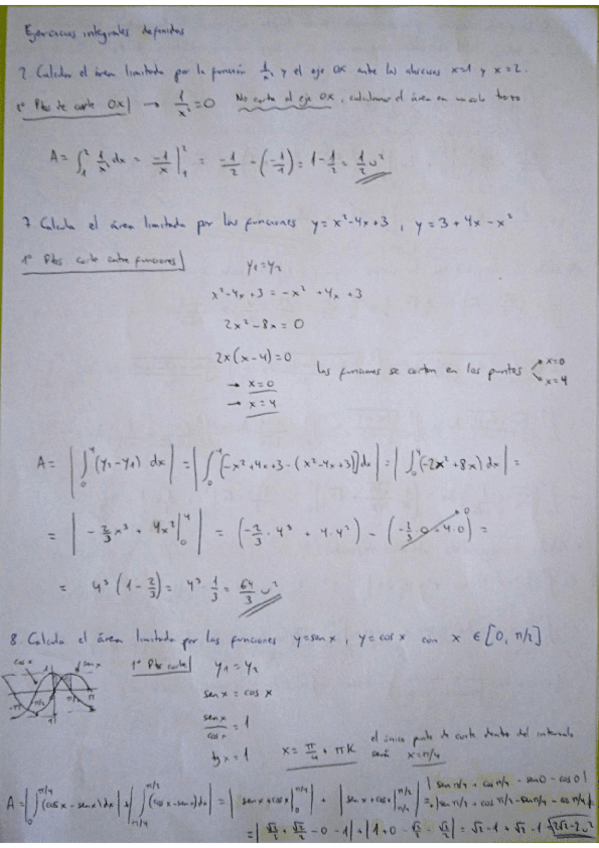 Ejercicios integrales definidas
2. Calcular el área limitada por la función 1/x² y el eje OX entre las abscisas x=1 y x=2.
1º Ptos de corte OX → 1/x² = 0 No corta al eje OX, calculamos el área en un solo trozo
A = ∫₁² 1/x² dx = -1/x |₁² = -1/2 - (-1/1) = 1 - 1/2 = 1/2 u²
7. Calcula el área limitada por las funciones y = x²-4x+3, y = 3+4x-x²
1º Ptos corte entre funciones
y₁ = y₂
x²-4x+3 = -x²+4x+3
2x²-8x = 0
2x(x-4) = 0
→ x=0
→ x=4
Las funciones se cortan en los puntos x=0 x=4
A = |∫₀⁴ (y₂-y₁) dx| = |∫₀⁴ [-x²+4x+3-(x²-4x+3)]dx| = |∫₀⁴ (-2x²+8x) dx| =
= |-2/3 x³ + 4x² |₀⁴| = (-2/3 · 4³ + 4·4²) - (-2/3 · 0 + 4·0) = 0
= 4³ (1 - 2/3) = 4³ · 1/3 = 64/3 u²
8. Calcula el área limitada por las funciones y=sen x, y=cos x con x ∈ [0, π/2]
cos x sen x
1º Ptos corte
y₁ = y₂
sen x = cos x
sen x / cos x = 1
tg x = 1 x = π/4 + πK
el único punto de corte dentro del intervalo
será x=π/4
A = |∫₀^π/4 (cos x - sen x) dx| + |∫π/4^π/2 (cos x - sen x) dx| = |sen x + cos x |₀^π/4| + |sen x + cos x |π/4^π/2| = |sen π/4 + cos π/4 - sen 0 - cos 0|
+ |sen π/2 + cos π/2 - sen π/4 - cos π/4| =
= |√2/2 + √2/2 - 0 - 1| + |1 + 0 - √2/2 - √2/2| = √2 - 1 + √2 - 1 = 2√2 - 2 u²